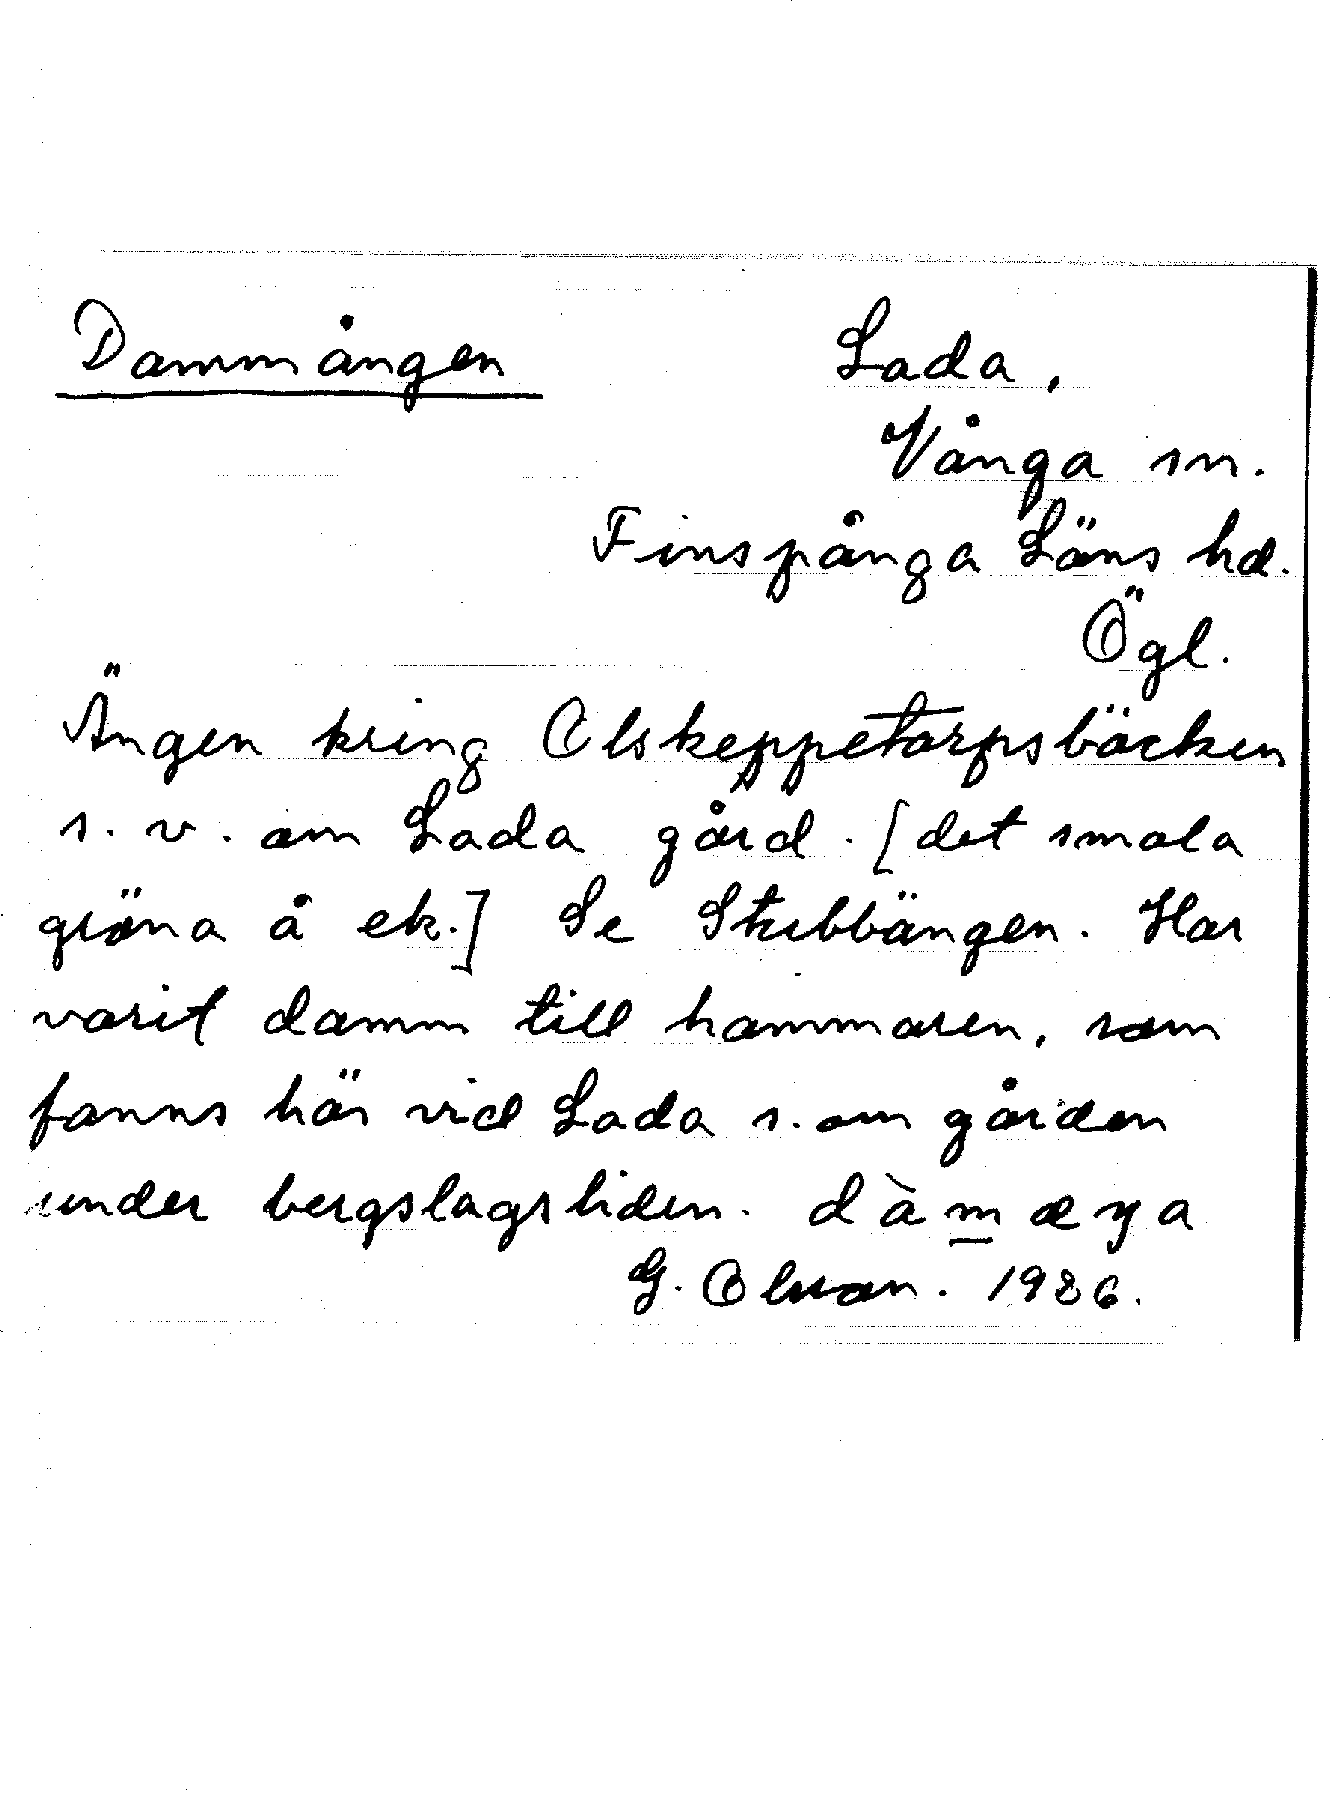 Dammängen
Lada,
Vånga sn.
Finspånga Läns hd.
Ögl.
Ängen kring Olskeppetorpsbäcken
s. v. om Lada gård. [det smala
gröna å ek.] Se Stubbängen. Har
varit damm till hammaren, som
fanns här vid Lada s. om gården
under bergslagstiden. dàm̲æŋa
G. Olsson. 1926.